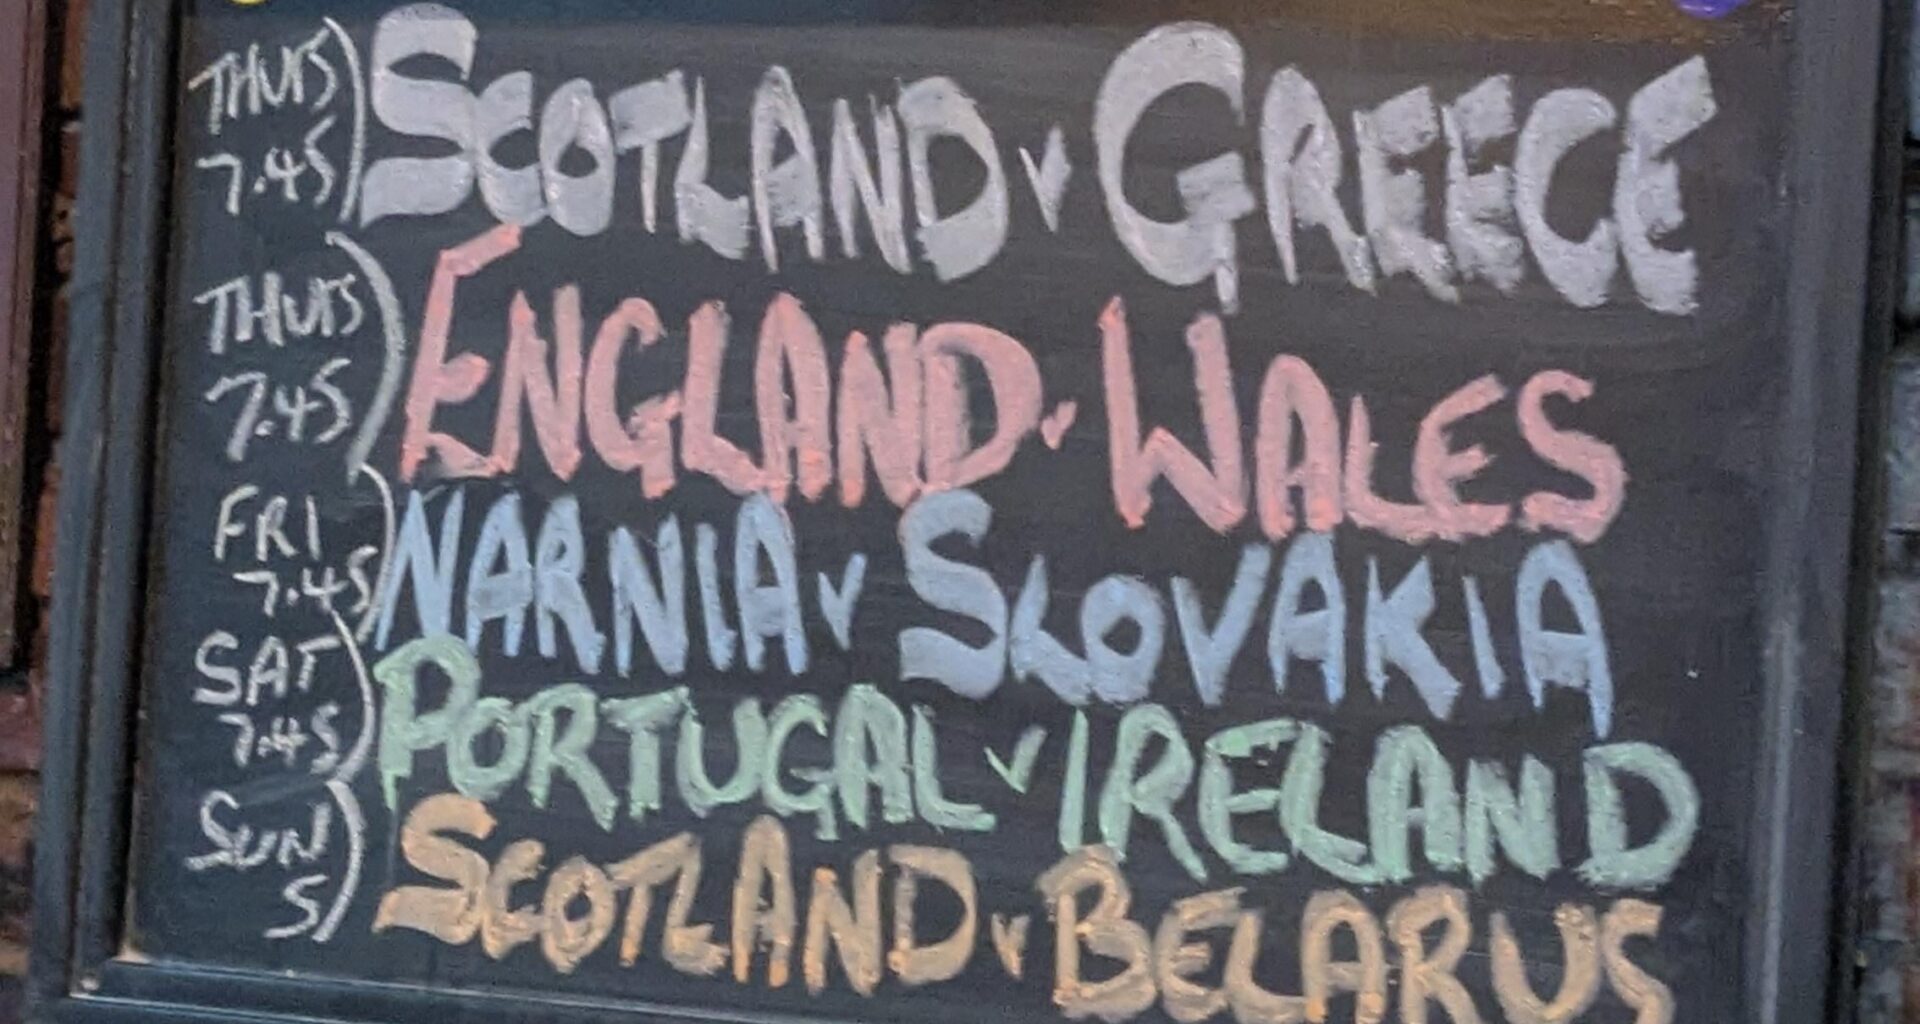 THURS 7.45) SCOTLAND v GREECE
THURS 7.45) ENGLAND v WALES
FRI 7.45) NARNIA v SLOVAKIA
SAT 7.45) PORTUGAL v IRELAND
SUN 5) SCOTLAND v BELARUS